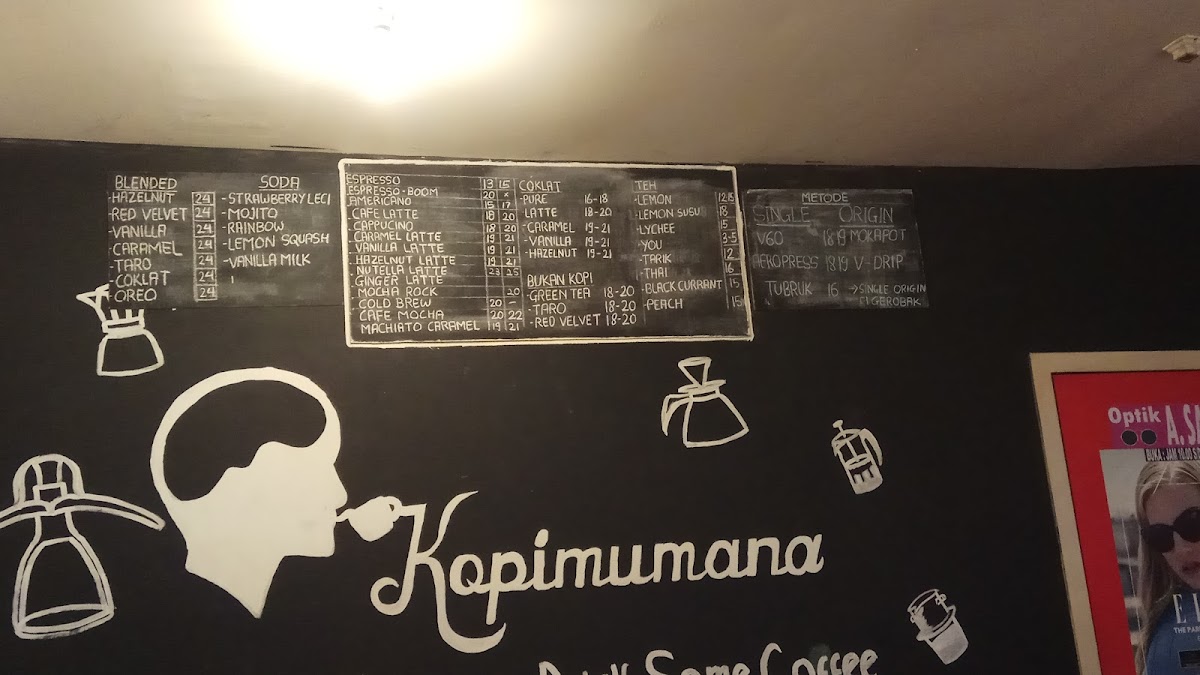 BLENDED
-HAZELNUT 24
-RED VELVET 24
-VANILLA 24
-CARAMEL 24
-TARO 24
-COKLAT 24
-OREO 24
SODA
-STRAWBERY LECI
-MOJITO
-RAINBOW
-LEMON SQUASH
-VANILLA MILK
ESPRESSO 13 15
ESPRESSO-BOOM 20 x
AMERICANO 15 17
CAFE LATTE 18 20
CAPPUCINO 18 20
CARAMEL LATTE 19 21
VANILLA LATTE 19 21
HAZELNUT LATTE 19 21
NUTELLA LATTE 23 25
GINGER LATTE
MOCHA ROCK 20
COLD BREW 20 -
CAFE MOCHA 20 22
MACHIATO CARAMEL 19 21
COKLAT
-PURE 16-18
LATTE 18-20
-CARAMEL 19-21
-VANILLA 19-21
-HAZELNUT 19-21
BUKAN KOPI
-GREEN TEA 18-20
-TARO 18-20
-RED VELVET 18-20
TEH
-LEMON 12 15
-LEMON SUSU 18
-LYCHEE 15
-YOU 3-5
-TARIK 12
-THAI 16
-BLACK CURRANT 15
-PEACH 15
METODE
SINGLE ORIGIN
V60 18 19 MOKAPOT
AEROPRESS 18 19 V-DRIP
TUBRUK 16 →SINGLE ORIGIN
Kopimumana
Some Coffee
Optik
A.SA
BUKA : JAM 10.00 S